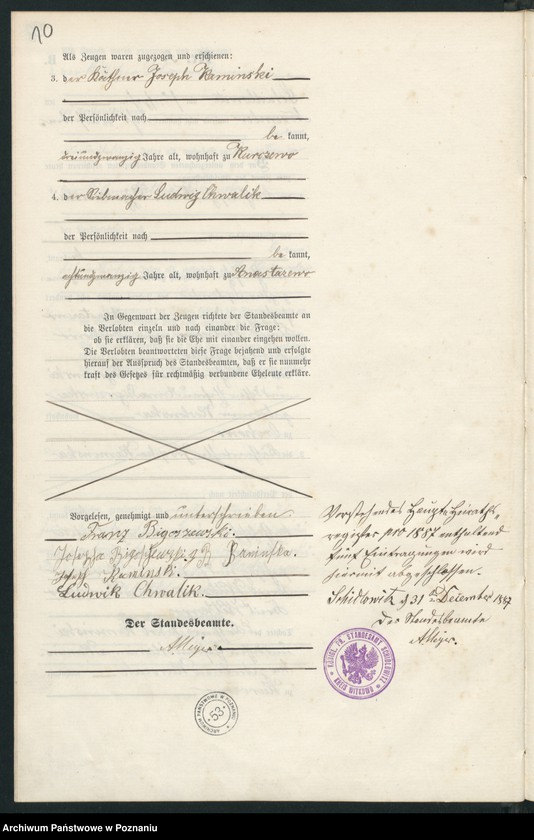 10
Als Zeugen waren zugezogen und erschienen:
3. der Käthner Joseph Kaminski
der Persönlichkeit nach
be kannt,
dreiundzwanzig Jahre alt, wohnhaft zu Kurczewo
4. der Ludwig Chwalik
der Persönlichkeit nach
be kannt,
achtundzwanzig Jahre alt, wohnhaft zu Anastazewo
In Gegenwart der Zeugen richtete der Standesbeamte an
die Verlobten einzeln und nach einander die Frage:
ob sie erklären, daß sie die Ehe mit einander eingehen wollen.
Die Verlobten beantworteten diese Frage bejahend und erfolgte
hierauf der Ausspruch des Standesbeamten, daß er sie nunmehr
kraft des Gesetzes für rechtmäßig verbundene Eheleute erkläre.
Vorgelesen, genehmigt und unterschrieben
Franz Bigoszewski.
Josepha g B Kaminska.
Joseph Kaminski.
Ludwik Chwalik.
Der Standesbeamte.
Vorstehendes Haupt-Heiraths-
register pro 1887 enthaltend
fünf Eintragungen wird
hiermit abgeschlossen.
Schidlowitz d 31 Dezember 1887
Der Standesbeamte
KÖNIGL. PR. STANDESAMT SCHIDLOWITZ
KREIS WITKOWO
ARCHIWUM PAŃSTWOWE W POZNANIU
53
Archiwum Państwowe w Poznaniu